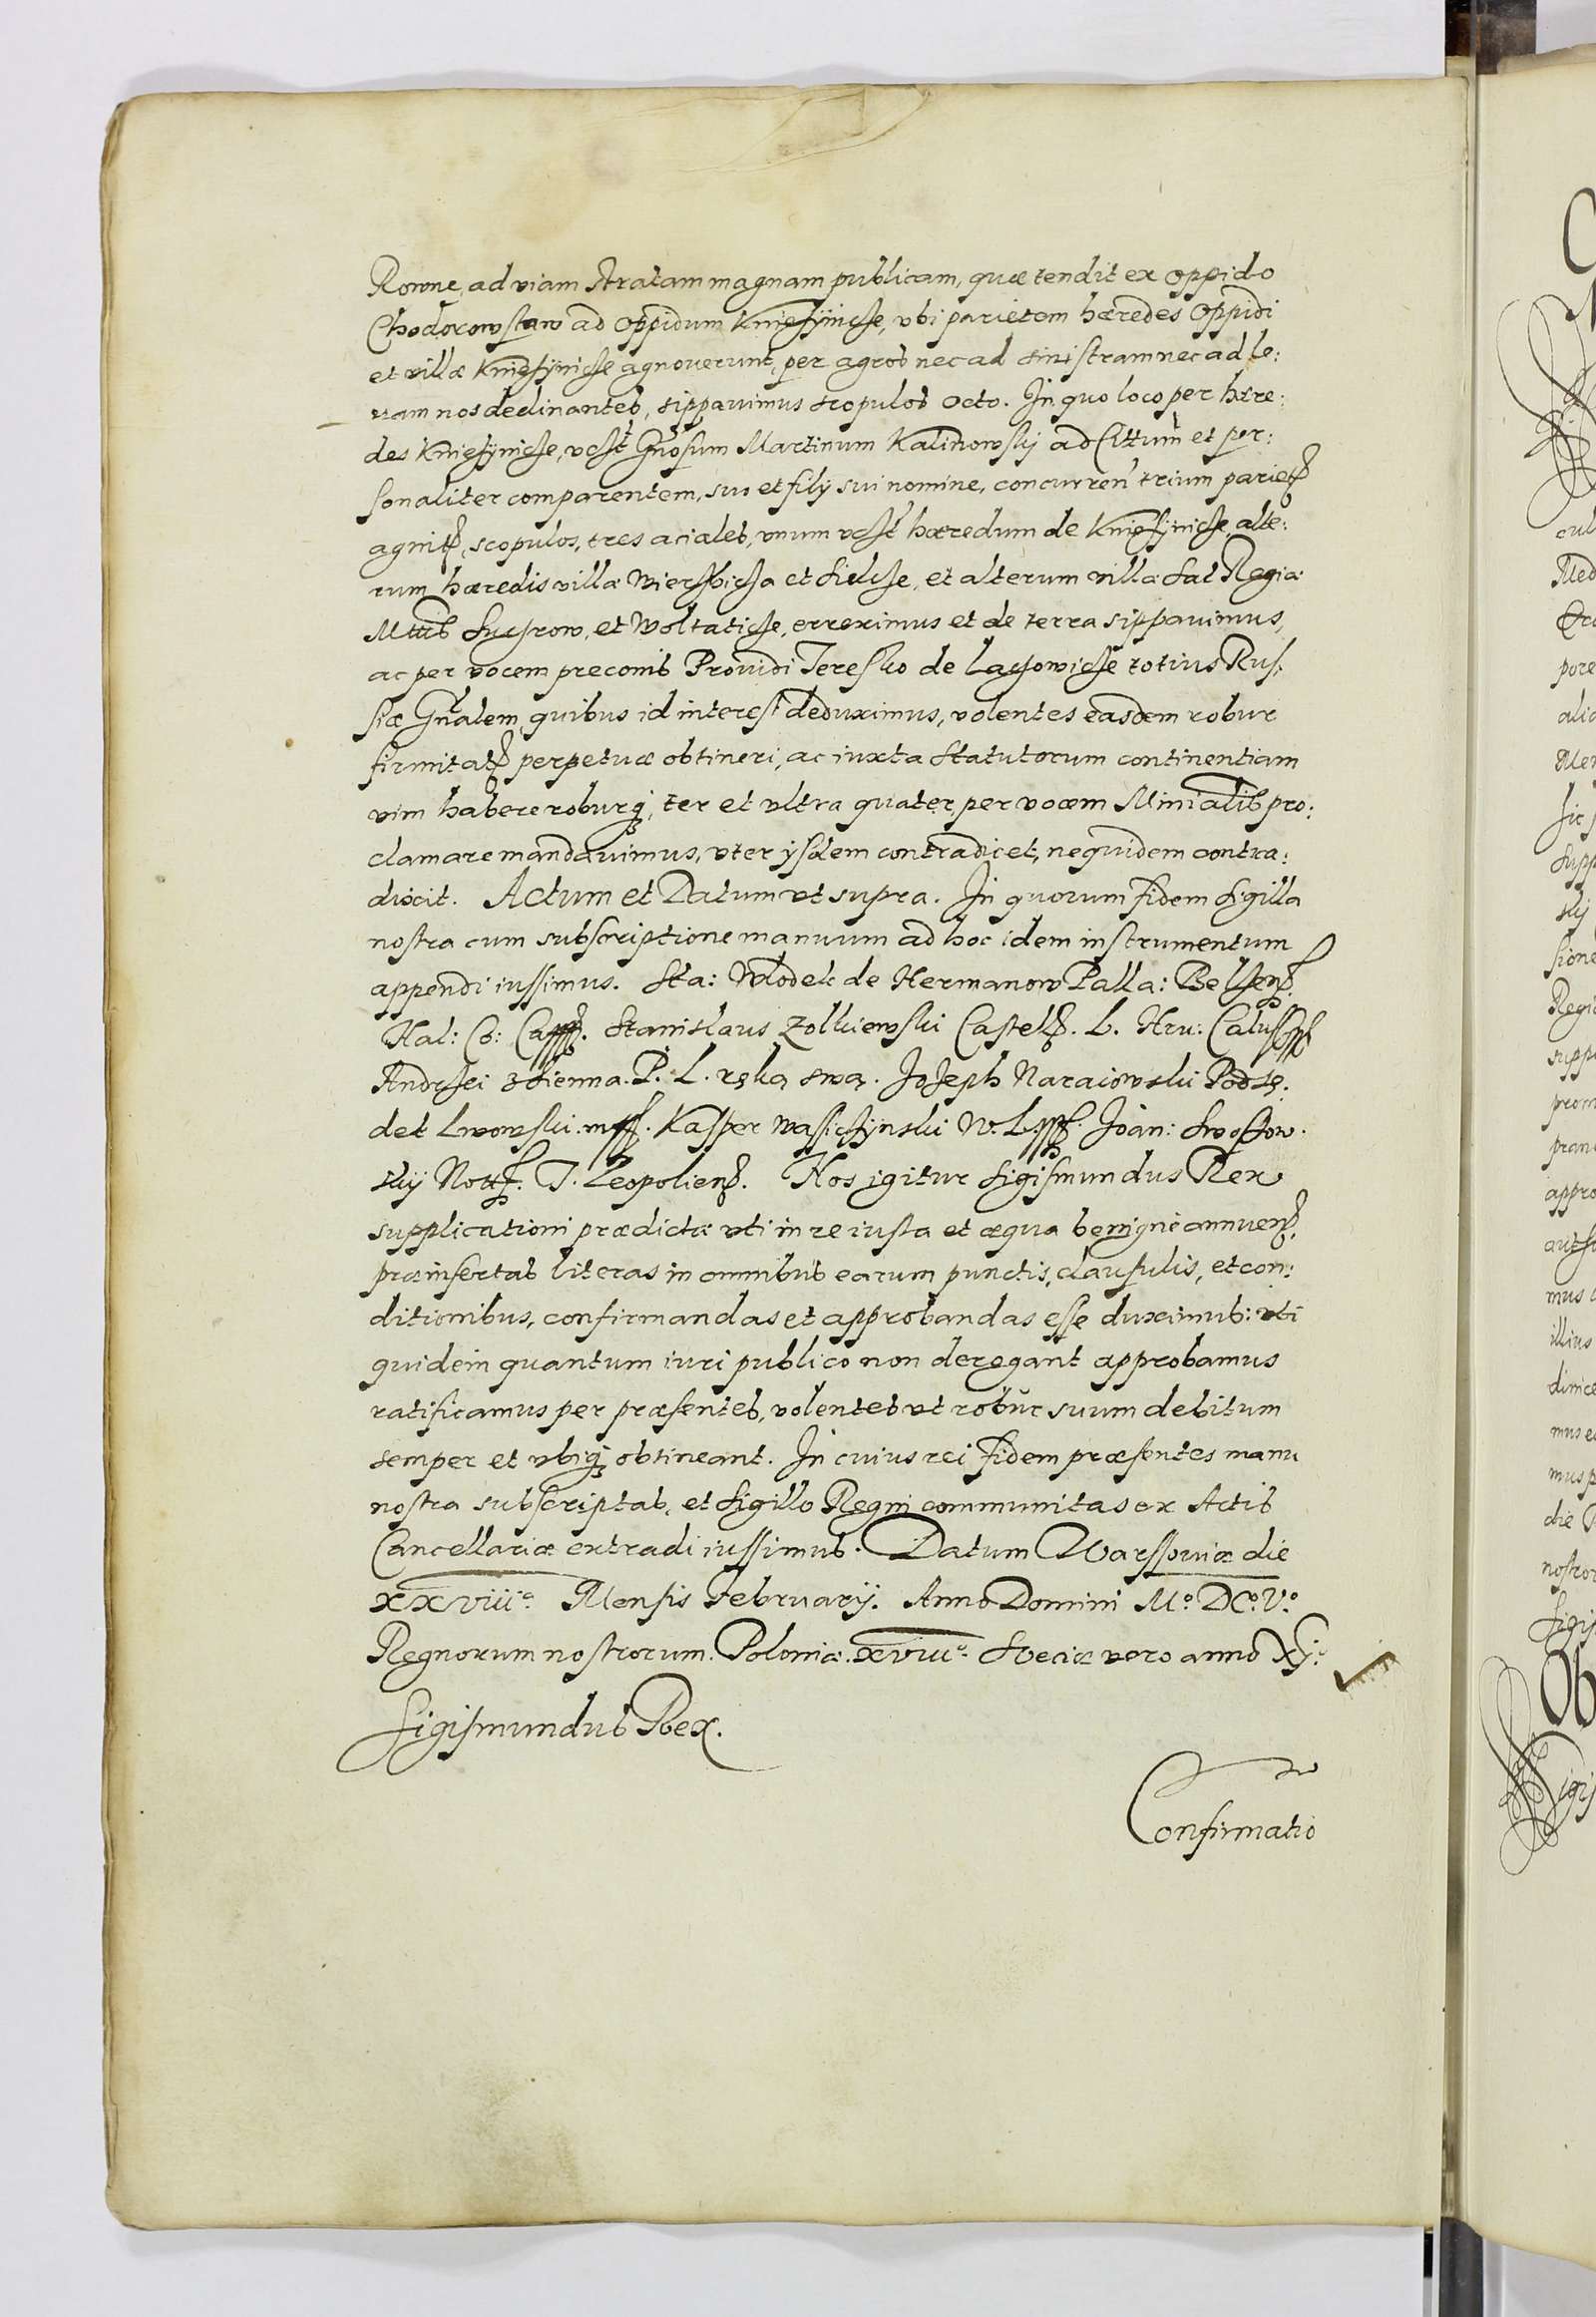 Rowne, ad viam stratam magnam publicam, quæ tendit ex oppido
Chodorowstaw ad oppidum Kniehÿnicze, vbi parietem hæredes Oppidi
et villæ Kniehÿnicze agnouerunt, per agros nec ad sinistram nec ad le:
uam nos declinantes, sippauimus scopulos octo. In quo loco per hære:
des Kniehÿnicze, vcžt Gñosum Martinum Kalinowskij ad Actum et per:
sonaliter comparentem, suo et filij sui nomine, concurren trium pariet
agnit, scopulos, tres aciales, vnum vcžt hæredum de Kniehinicze, alte:
rum hæredis villæ Wierzbicza et Sielcze, et alterum villæ Sac Regiæ
Mttis Suchrow, et Woltaticze, erreximus et de terra sippauimus,
ac per vocem preconis Prouidi Teresko de Lachowicze totius Rus,
siæ Gñalem, quibus id interest deduximus, volentes easdem robur
firmitat perpetuæ obtineri, ac iuxta Statutorum continentiam
vim habere roburq, ter et vltra quater, per vocem Minialis pro:
clamare mandauimus, vter ijsdem contradicet, nequidem contra:
dixit. Actum et Datum vt supra. In quorum fidem Sigilla
nostra cum subscriptione manuum ad hoc idem instrumentum
appendi iussimus. Sta: Wlodek de Hermanow Palla: Belzen.
Hal: Co: Capp. Stanislaus Zolkiewski Castell. L. Hru: Calus
Andrzei z Sienna. P. L. ręką swą. Joseph Naraiowski Podsę.
dek Lwowski. mpp. Kasper Wasiczÿnski W. L. pp. Joan: Swoszow.
skij Nott. T. Leopolien. Nos igitur Sigismundus Rex
supplicationi prædictæ vti in re iusta et æqua benignè annuen.
præinsertas literas in omnibus earum punctis, clausulis, et con:
ditionibus, confirmandas et approbandas esse duximus: vti
quidem quantum iuri publico non derogant approbamus
ratificamus per præsentes, volentes vt robur suum debitum
semper et vbiq obtineant. In cuius rei fidem præsentes manu
nostra subscriptas, et Sigillo Regni communitas ex Actis
Cancellariæ extradi iussimus. Datum Warssouiæ die
xxviiiº. Mensis Februarij. Anno Domini Mº. DCº. Vº.
Regnorum nostrorum. Poloniæ. xviiiº. Sveciæ vero anno Xjº.
Sigismundus Rex.
Confirmatio